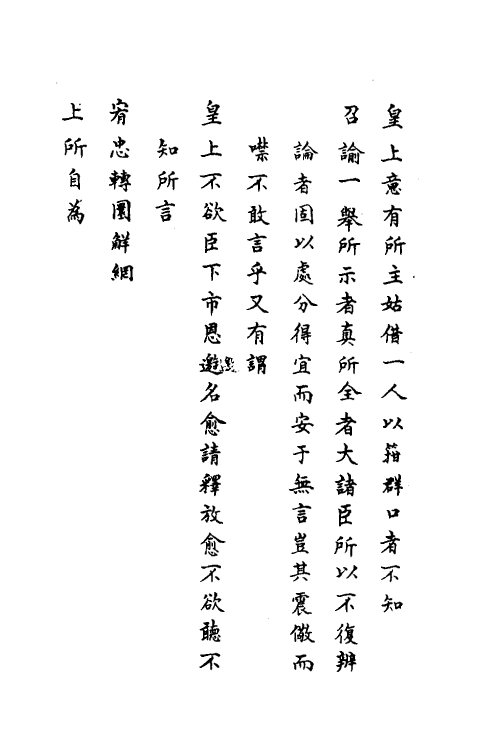 皇上意有所主姑借一人以箝群口者不知
召諭一舉所示者真所全者大諸臣所以不復辨
論者固以處分得宜而安于無言豈其震儆而
噤不敢言乎又有謂
皇上不欲臣下市恩邀名愈請釋放愈不欲聽不
知所言
宥忠轉圜解網
上所自為